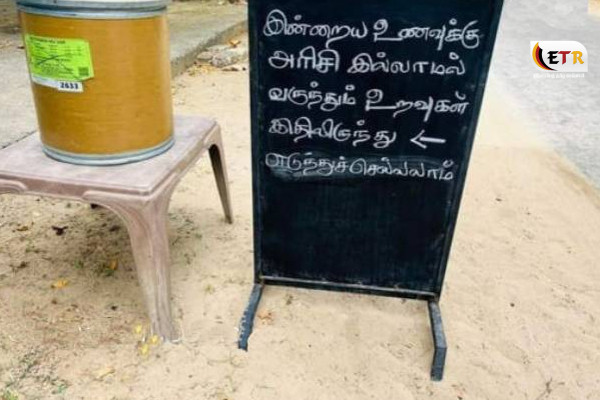 இன்றைய உணவுக்கு
அரிசி இல்லாமல்
வருந்தும் உறவுகள்
இதிலிருந்து ←
எடுத்துச்செல்லலாம்
2633
ETR